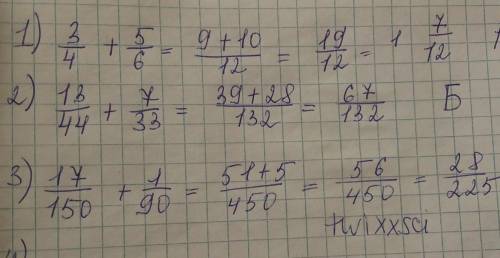 1) 3/4 + 5/6 = (9+10)/12 = 19/12 = 1 7/12
2) 13/44 + 7/33 = (39+28)/132 = 67/132 Б
3) 17/150 + 1/90 = (51+5)/450 = 56/450 = 28/225